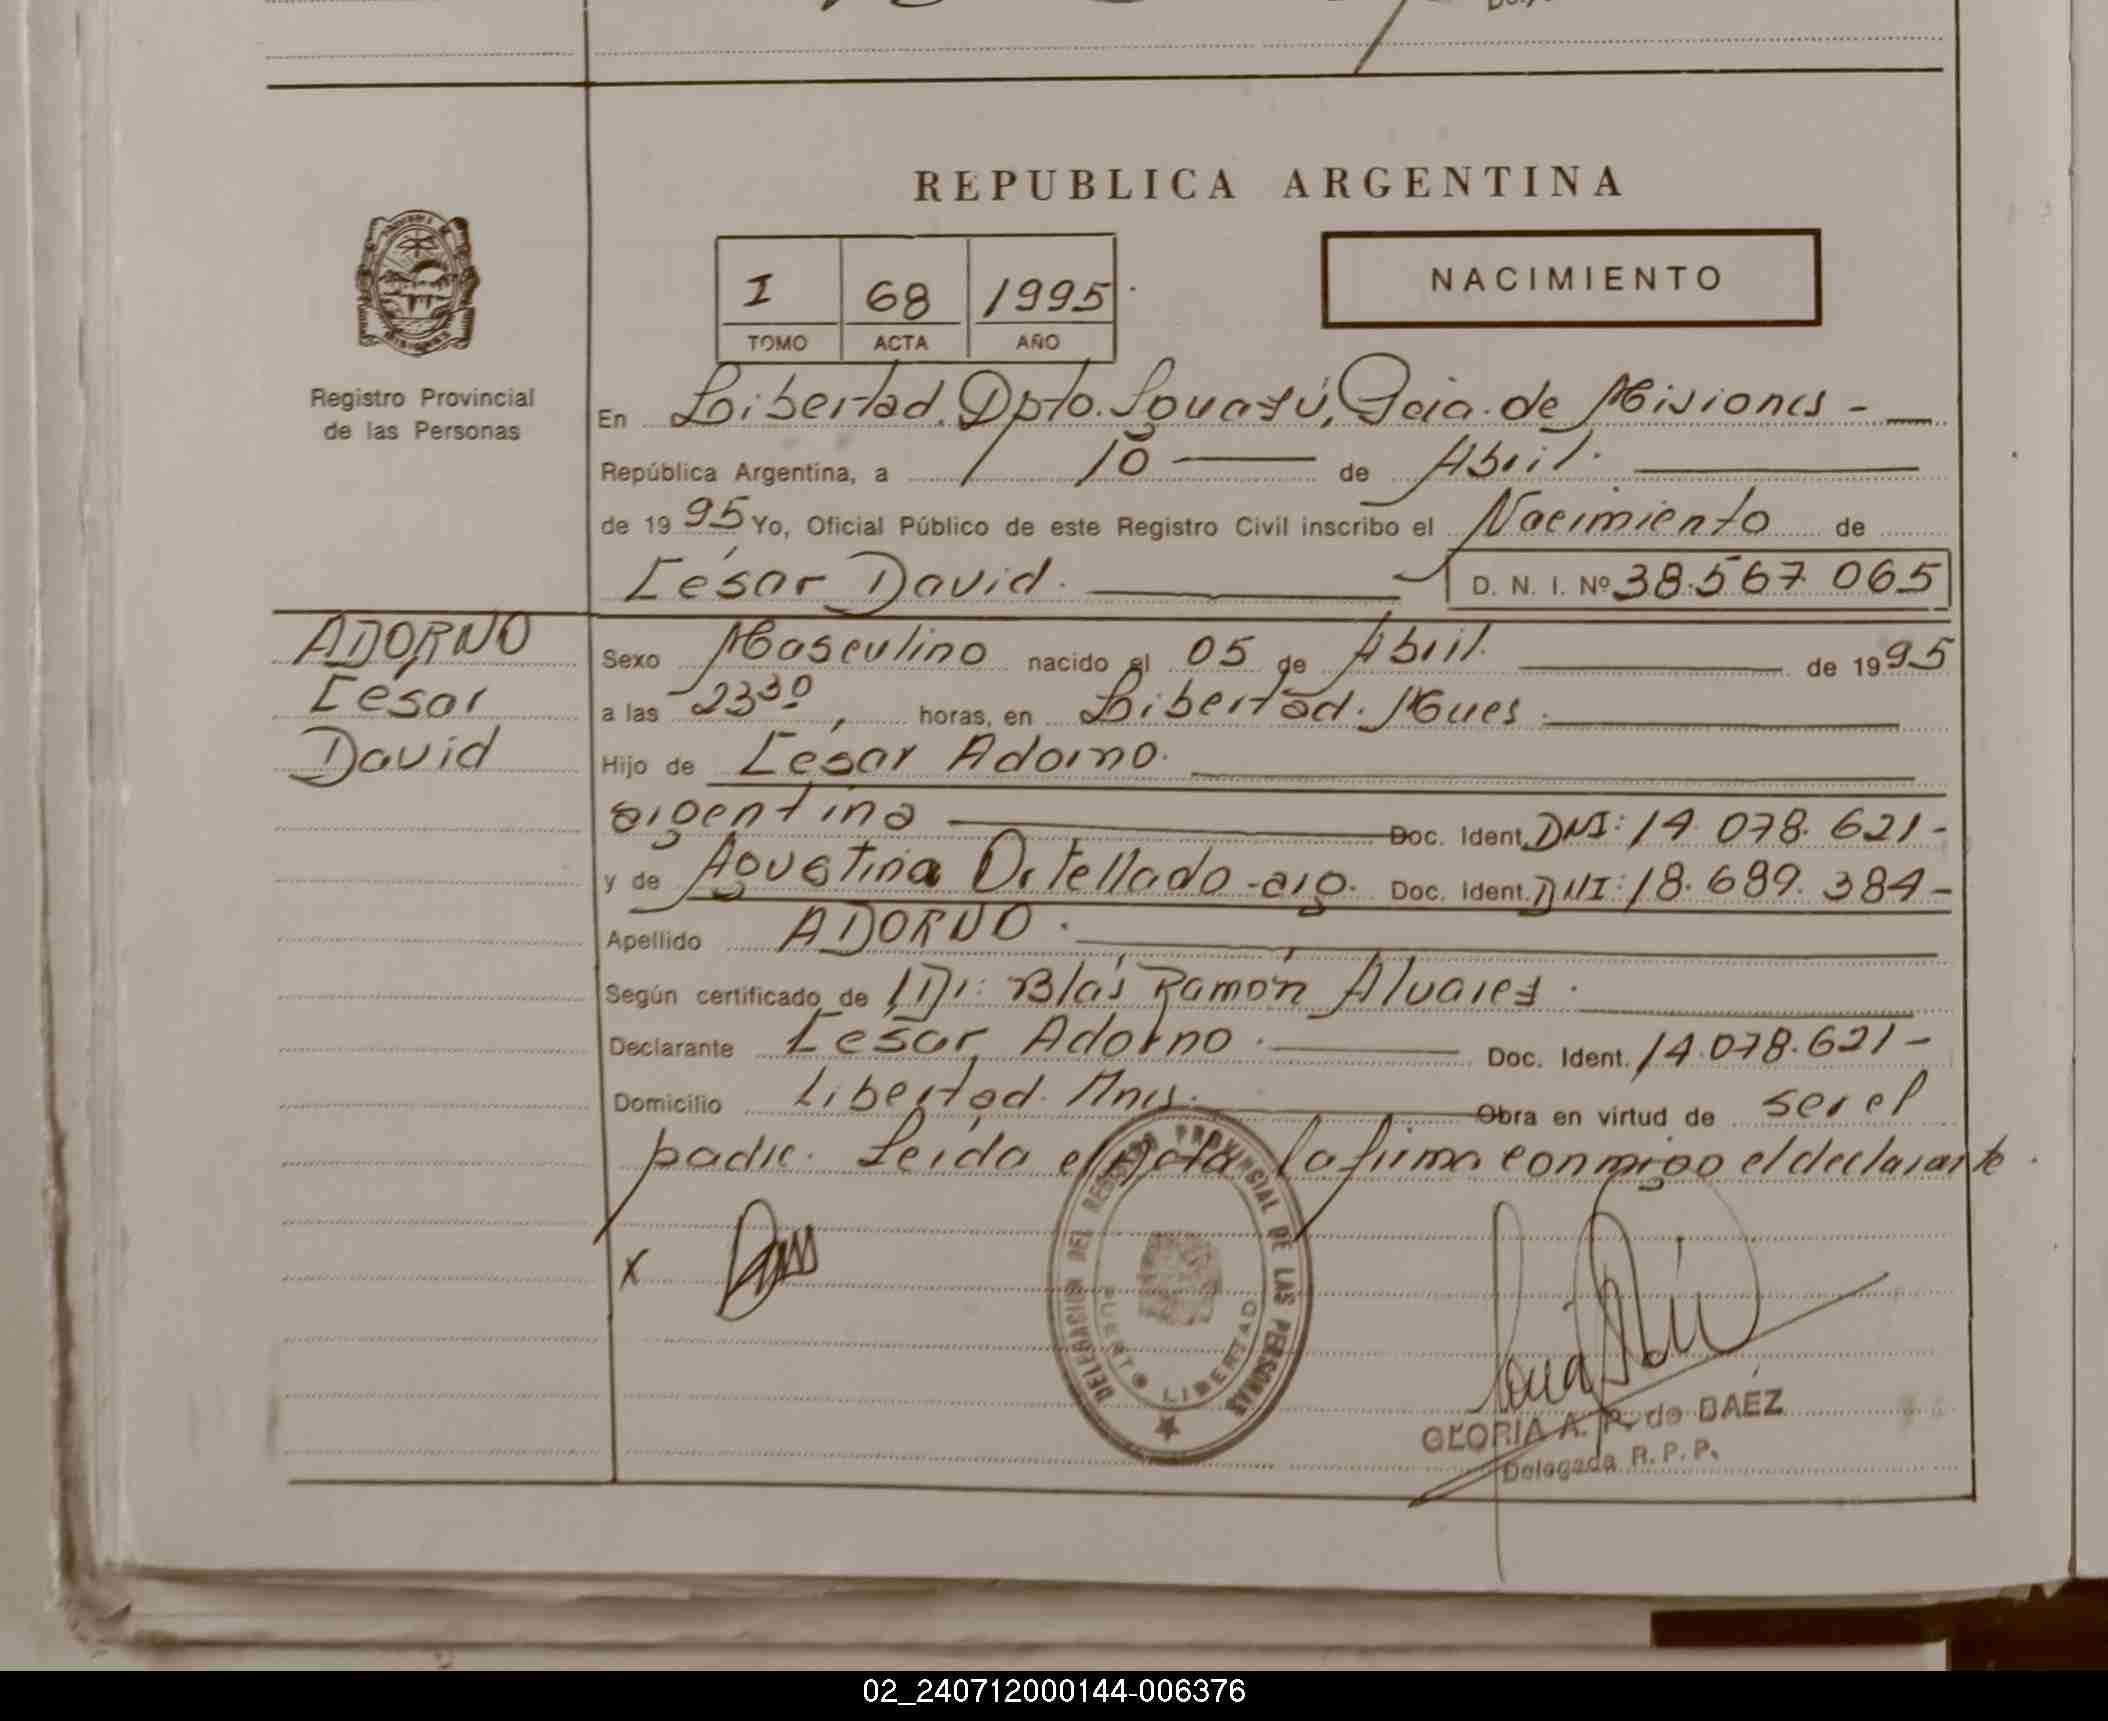 REPUBLICA ARGENTINA
I 68 1995
TOMO ACTA AÑO
NACIMIENTO
Registro Provincial
de las Personas
En Libertad. Dpto. Iguazú, Pcia. de Misiones -
República Argentina, a 10 de Abril.
de 1995 Yo, Oficial Público de este Registro Civil inscribo el Nacimiento de
César David. D. N. I. Nº 38.567.065
ADORNO
César
David
Sexo Masculino nacido el 05 de Abril. de 1995
a las 23 30, horas, en Libertad.
Hijo de César Adorno.
argentina Doc. Ident. DNI: 14.078.621-
y de Agustina Ortellado - arg. Doc. Ident. DNI: 18.689.384-
Apellido ADORNO.
Según certificado de Dr. Blás Ramón Alvares.
Declarante César Adorno. Doc. Ident. 14.078.621-
Domicilio Libertad. Mnes. Obra en virtud de ser el
padre. Leída el acta la firma conmigo el declarante.
x
DELEGACION DEL REGISTRO PROVINCIAL DE LAS PERSONAS
PUERTO LIBERTAD
GLORIA A. P. de BAEZ
Delegada R. P. P.
02_240712000144-006376